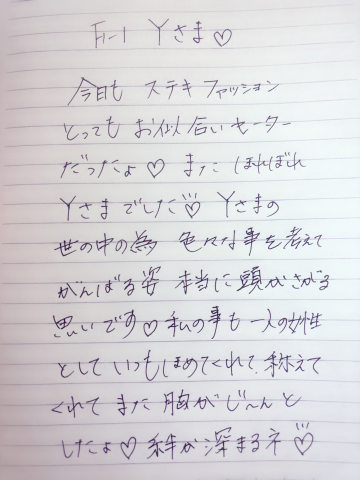 Yさま♡
今日も ステキ ファッション
とっても お似合い セーター
だったよ♡ また ほれぼれ
Yさまでした♡ Yさまの
世の中の為 色々な事を考えて
がんばる姿 本当に頭がさがる
思いです♡ 私の事も 一人の女性
として いつもほめてくれて、称えて
くれて また 胸がじ〜んと
したよ♡ 絆が深まるネ♡